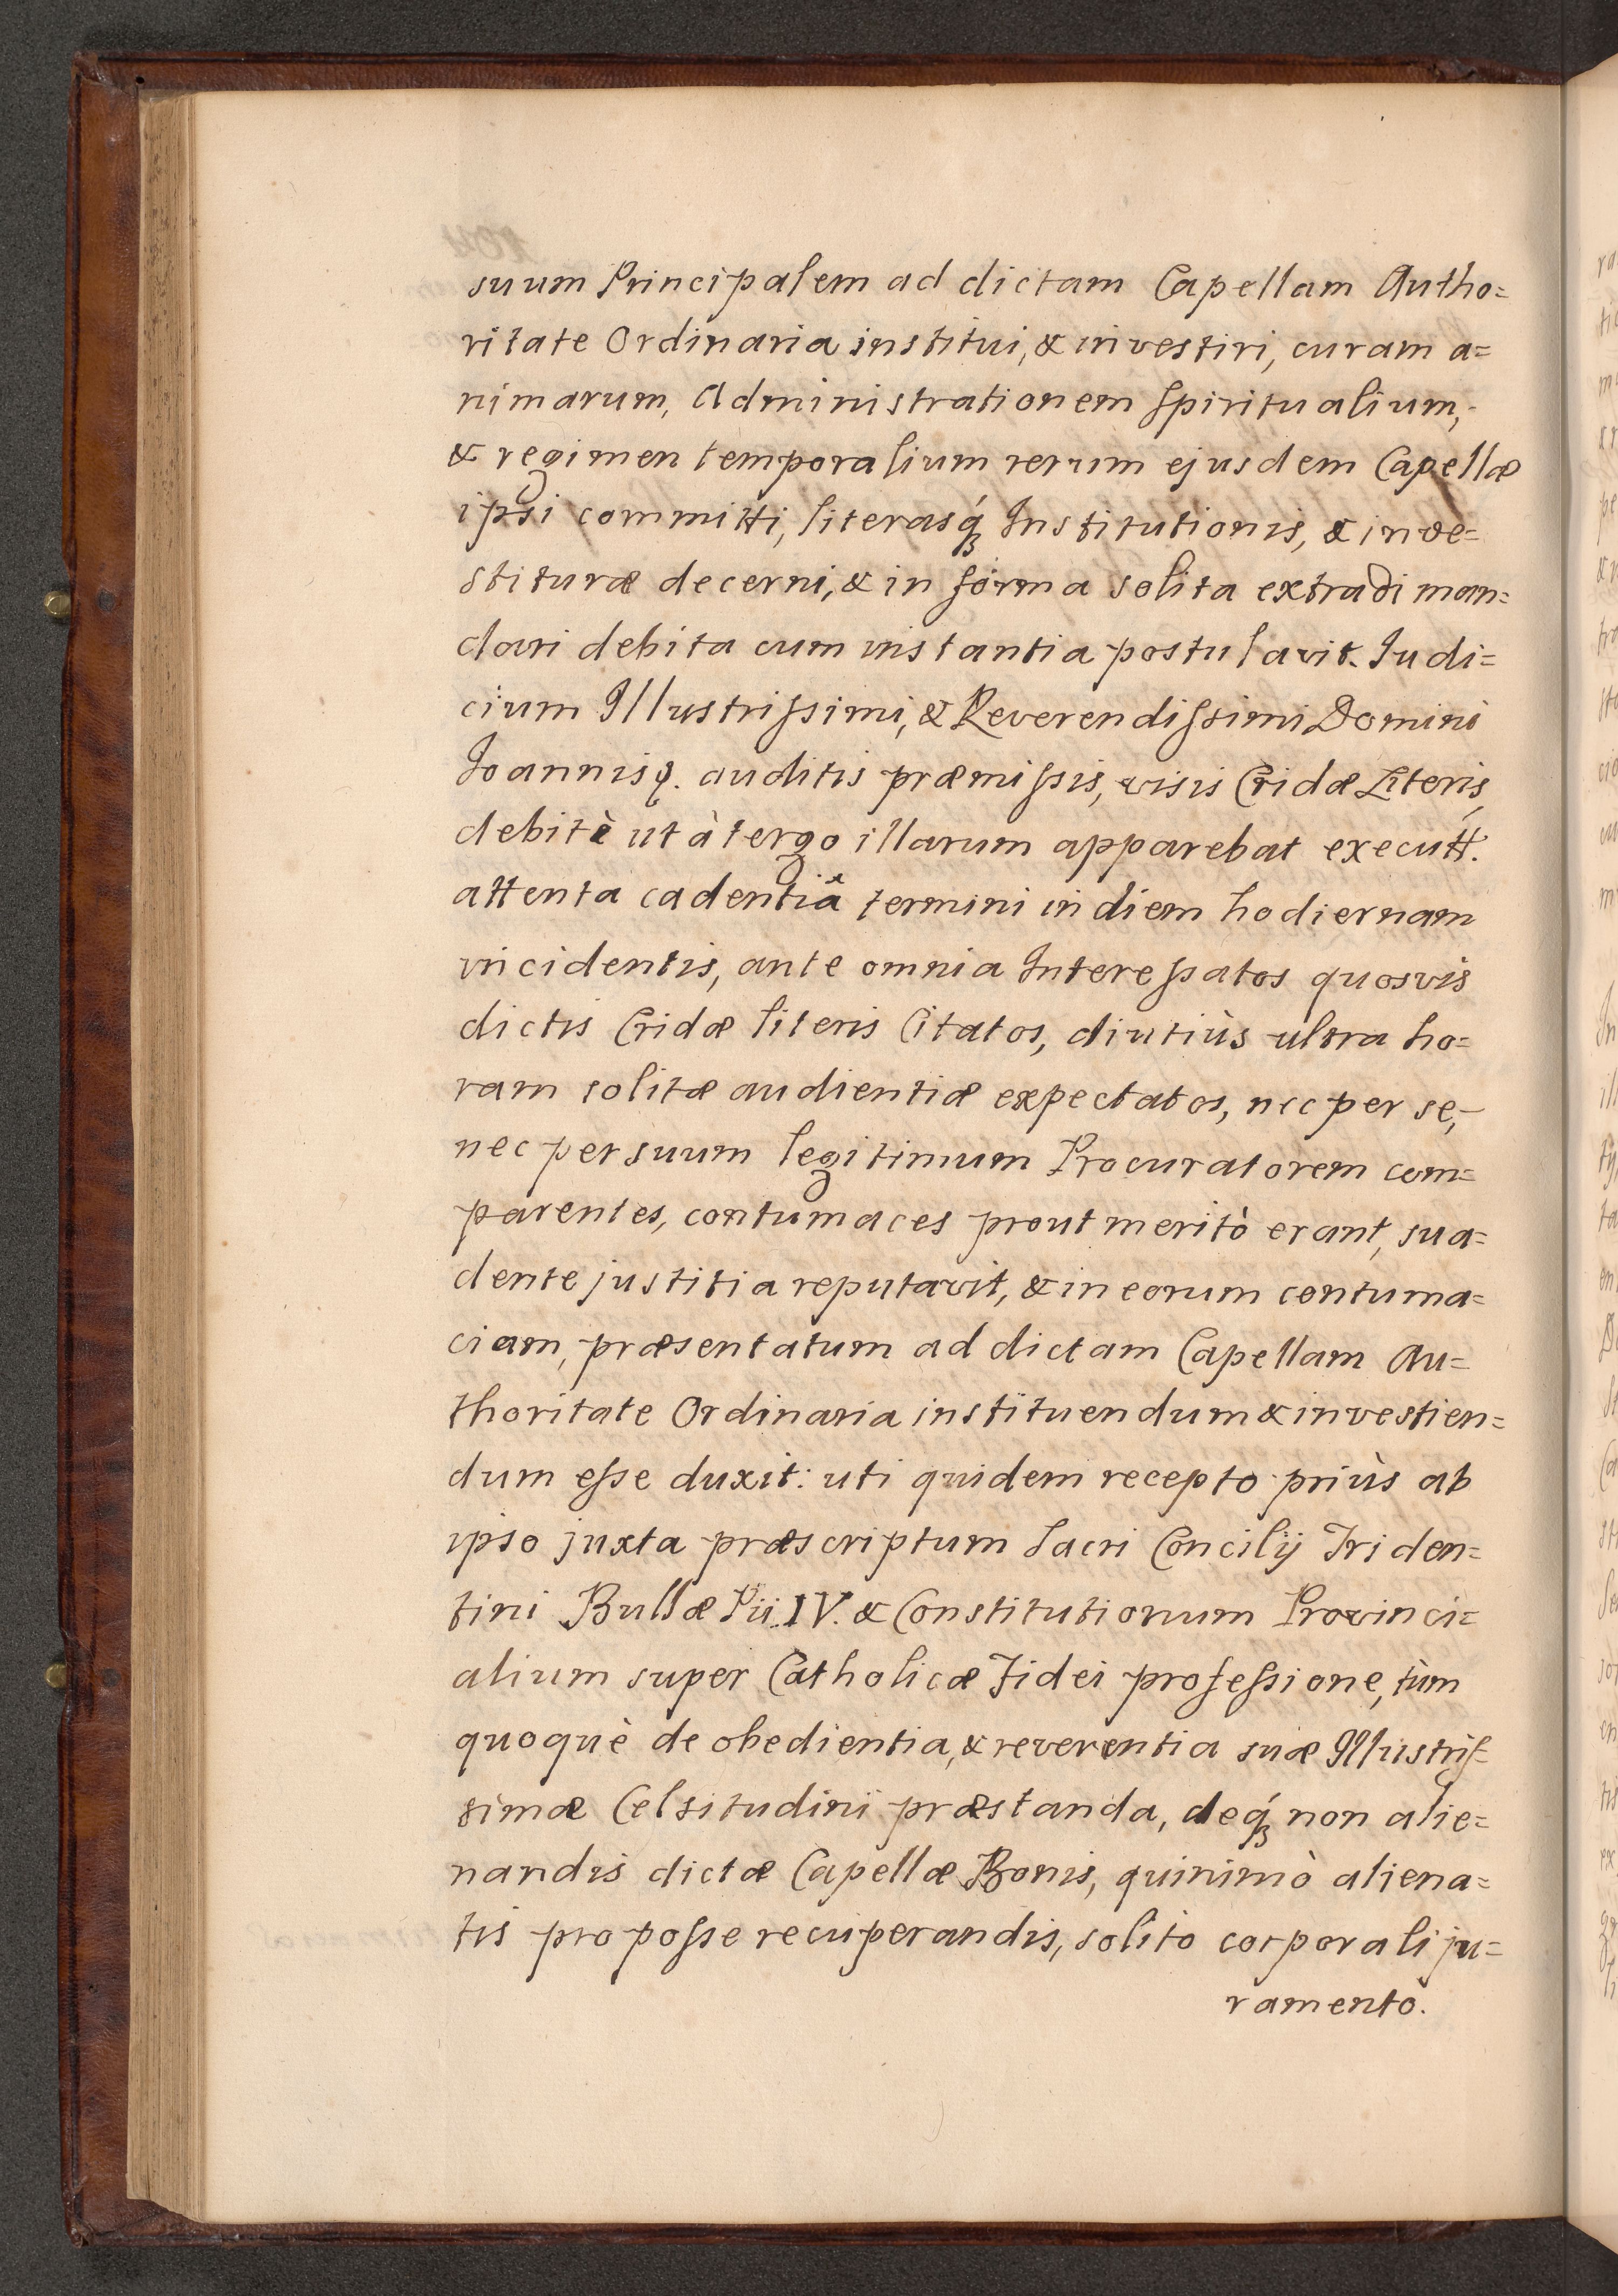 suum Principalem ad dictam Capellam Autho=
ritate Ordinaria institui, & investiri, curam a=
nimarum, Administrationem Spiritualium,
& regimen temporalium rerum ejusdem Capellæ
ipsi committi, literasq́ꝫ Institutionis, & inve=
stituræ decerni, & in forma solita extradi man=
dari debita cum instantia postulavit. Judi=
cium Illustriſsimi, & Reverendiſsimi Domini
Joannis auditis præmiſsis, visis Cridæ Literis,
debitè ut à tergo illarum apparebat executt.
attenta cadentiâ termini in diem hodiernam
incidentis, ante omnia Intereſsatos quosvis
dictis Cridæ literis Citatos, diutiùs ultra ho=
ram solitæ audientiæ expectatos, nec per se,
nec per suum legitimum Procuratorem com=
parentes, contumaces prout meritò erant, sua=
dente justitia reputavit, & in eorum contuma=
ciam, præsentatum ad dictam Capellam Au=
thoritate Ordinaria instituendum & investien=
dum eſse duxit: uti quidem recepto priùs ab
ipso juxta præscriptum Sacri Concilij Triden=
tini Bullæ Pii IV. & Constitutionum Provinci=
alium super Catholicæ Fidei profeſsione, tùm
quoquè de obedientia, & reverentia suæ Illustriſ=
simæ Celsitudini præstanda, deq́ꝫ non alie=
nandis dictæ Capellæ Bonis, quinimò aliena=
tis pro poſse recuperandis, solito corporali ju=
ramentò.